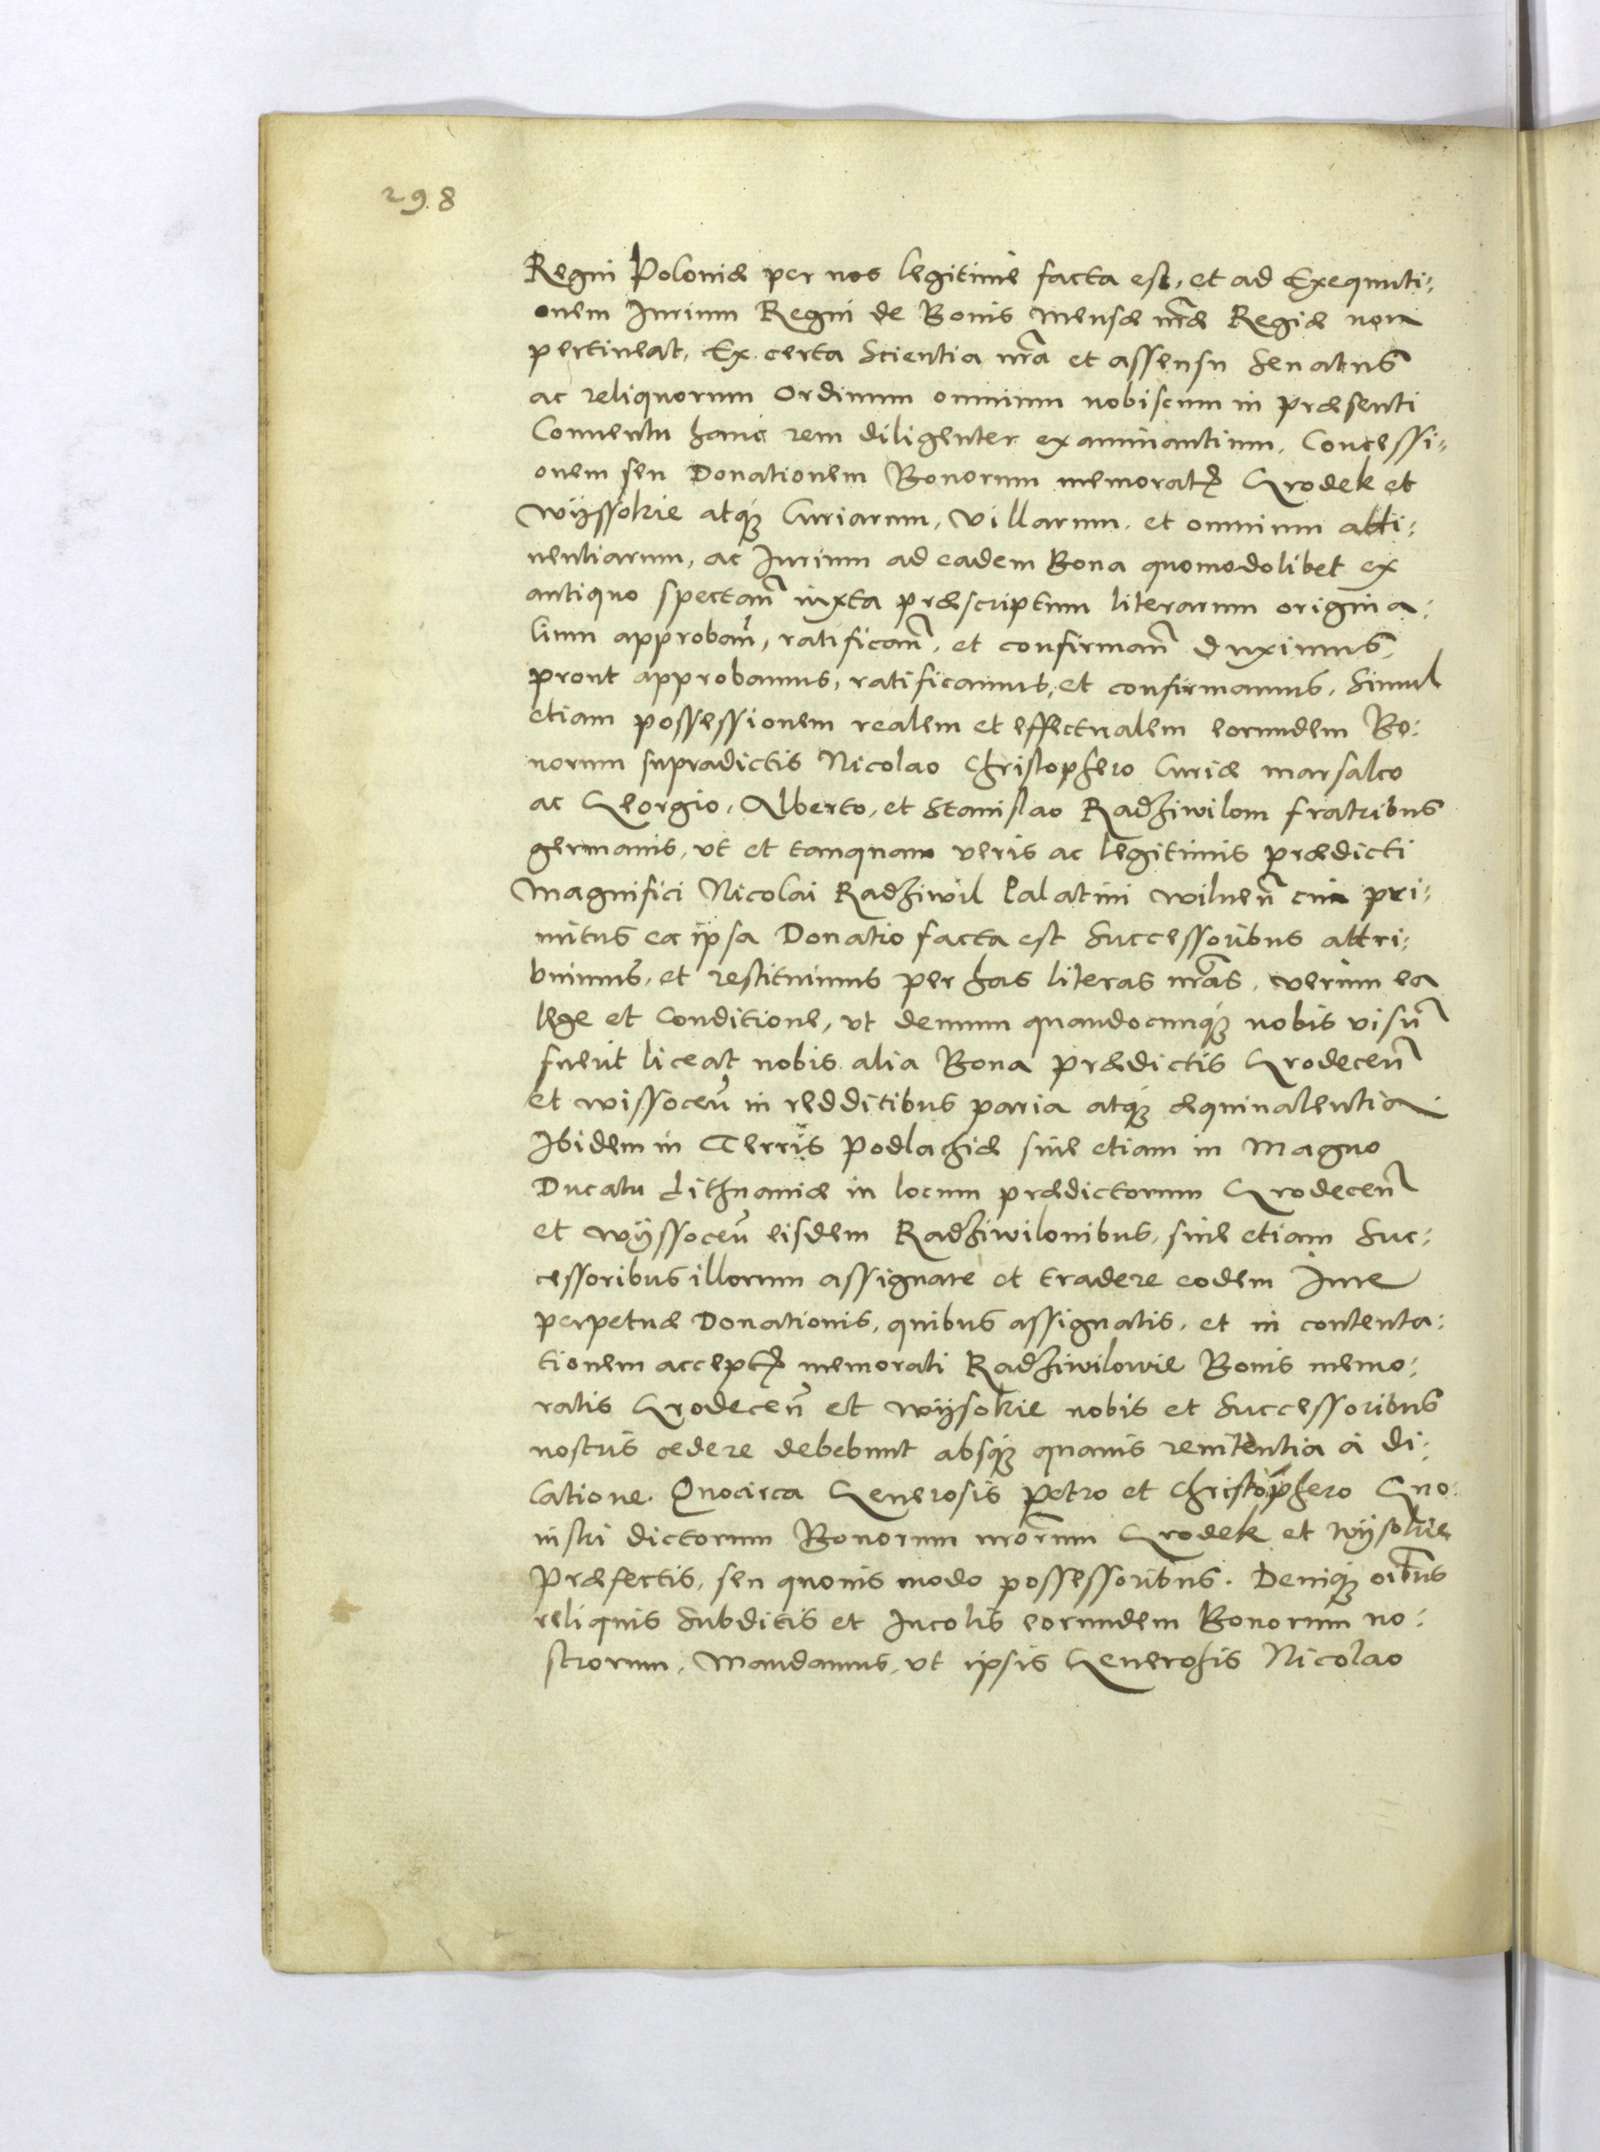 298
Regni Poloniæ per nos legitime facta est, et ad Exequuti:
onem Iurium Regni de Bonis mensæ nr̃æ Regiæ non
pertineat, Ex certa scientia nr̃a et assensu Senatus
ac reliquorum Ordinum omnium nobiscum in præsenti
Conuentu hanc rem diligenter examinantium, Concessi:
onem seu Donationem Bonorum memorat Grodek et
Wÿssokie atq Curiarum, villarum, et omnium atti:
nentiarum, ac Iurium ad eadem Bona quomodolibet ex
antiquo spectañ iuxta præscriptum literarum origina:
lium approbañ, ratificañ, et confirmañ duximus,
prout approbamus, ratificamus, et confirmamus, Simul
etiam possessionem realem et effectualem eorundem Bo:
norum supradictis Nicolao Christophero Curiæ marsalco
ac Georgio, Alberto, et Stanislao Radziwilom fratribus
germanis, vt et tanquam veris ac legitimis prædicti
Magnifici Nicolai Radziwil Palatini wilneñ cui pri:
mitus ea ipsa Donatio facta est Successoribus attri:
buimus, et restituimus per has literas nr̃as, verum ea
lege et Conditione, vt demum quandocunq nobis visũ
fuerit liceat nobis alia Bona prædictis Grodeceñ
et wissoceñ in redditibus paria atq æquiualentia
Ibidem in Terris Podlachiæ siue etiam in Magno
Ducatu Lithuaniæ in locum prædictorum Grodeceñ
et wÿssoceñ eisdem Radziwilonibus, siue etiam Suc:
cessoribus illorum assignare et tradere eodem Iure
perpetuæ Donationis, quibus assignatis, et in contenta:
tionem accept memorati Radziwilowie Bonis memo:
ratis Grodeceñ et wÿsokie nobis et Successoribus
nostris cedere debebunt absq quauis renitentia a di:
latione. Quocirca Generosis Petro et Christophero Gno:
inski dictorum Bonorum nr̃orum Grodek et Wÿsokie
Præfectis, seu quouis modo possessoribus. Deniq oĩbus
reliquis Subditis et Incolis eorundem Bonorum no:
strorum, Mandamus, vt ipsis Generosis Nicolao